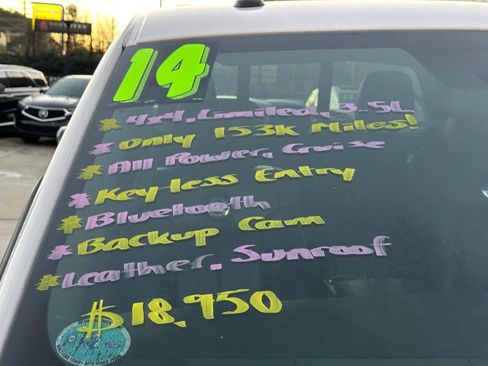 14
* 4x4, Limited, 3.5L
* Only 153K Miles!
* All Power, Cruise
* Keyless Entry
* Bluetooth
* Backup Cam
* Leather, Sunroof
$18,950